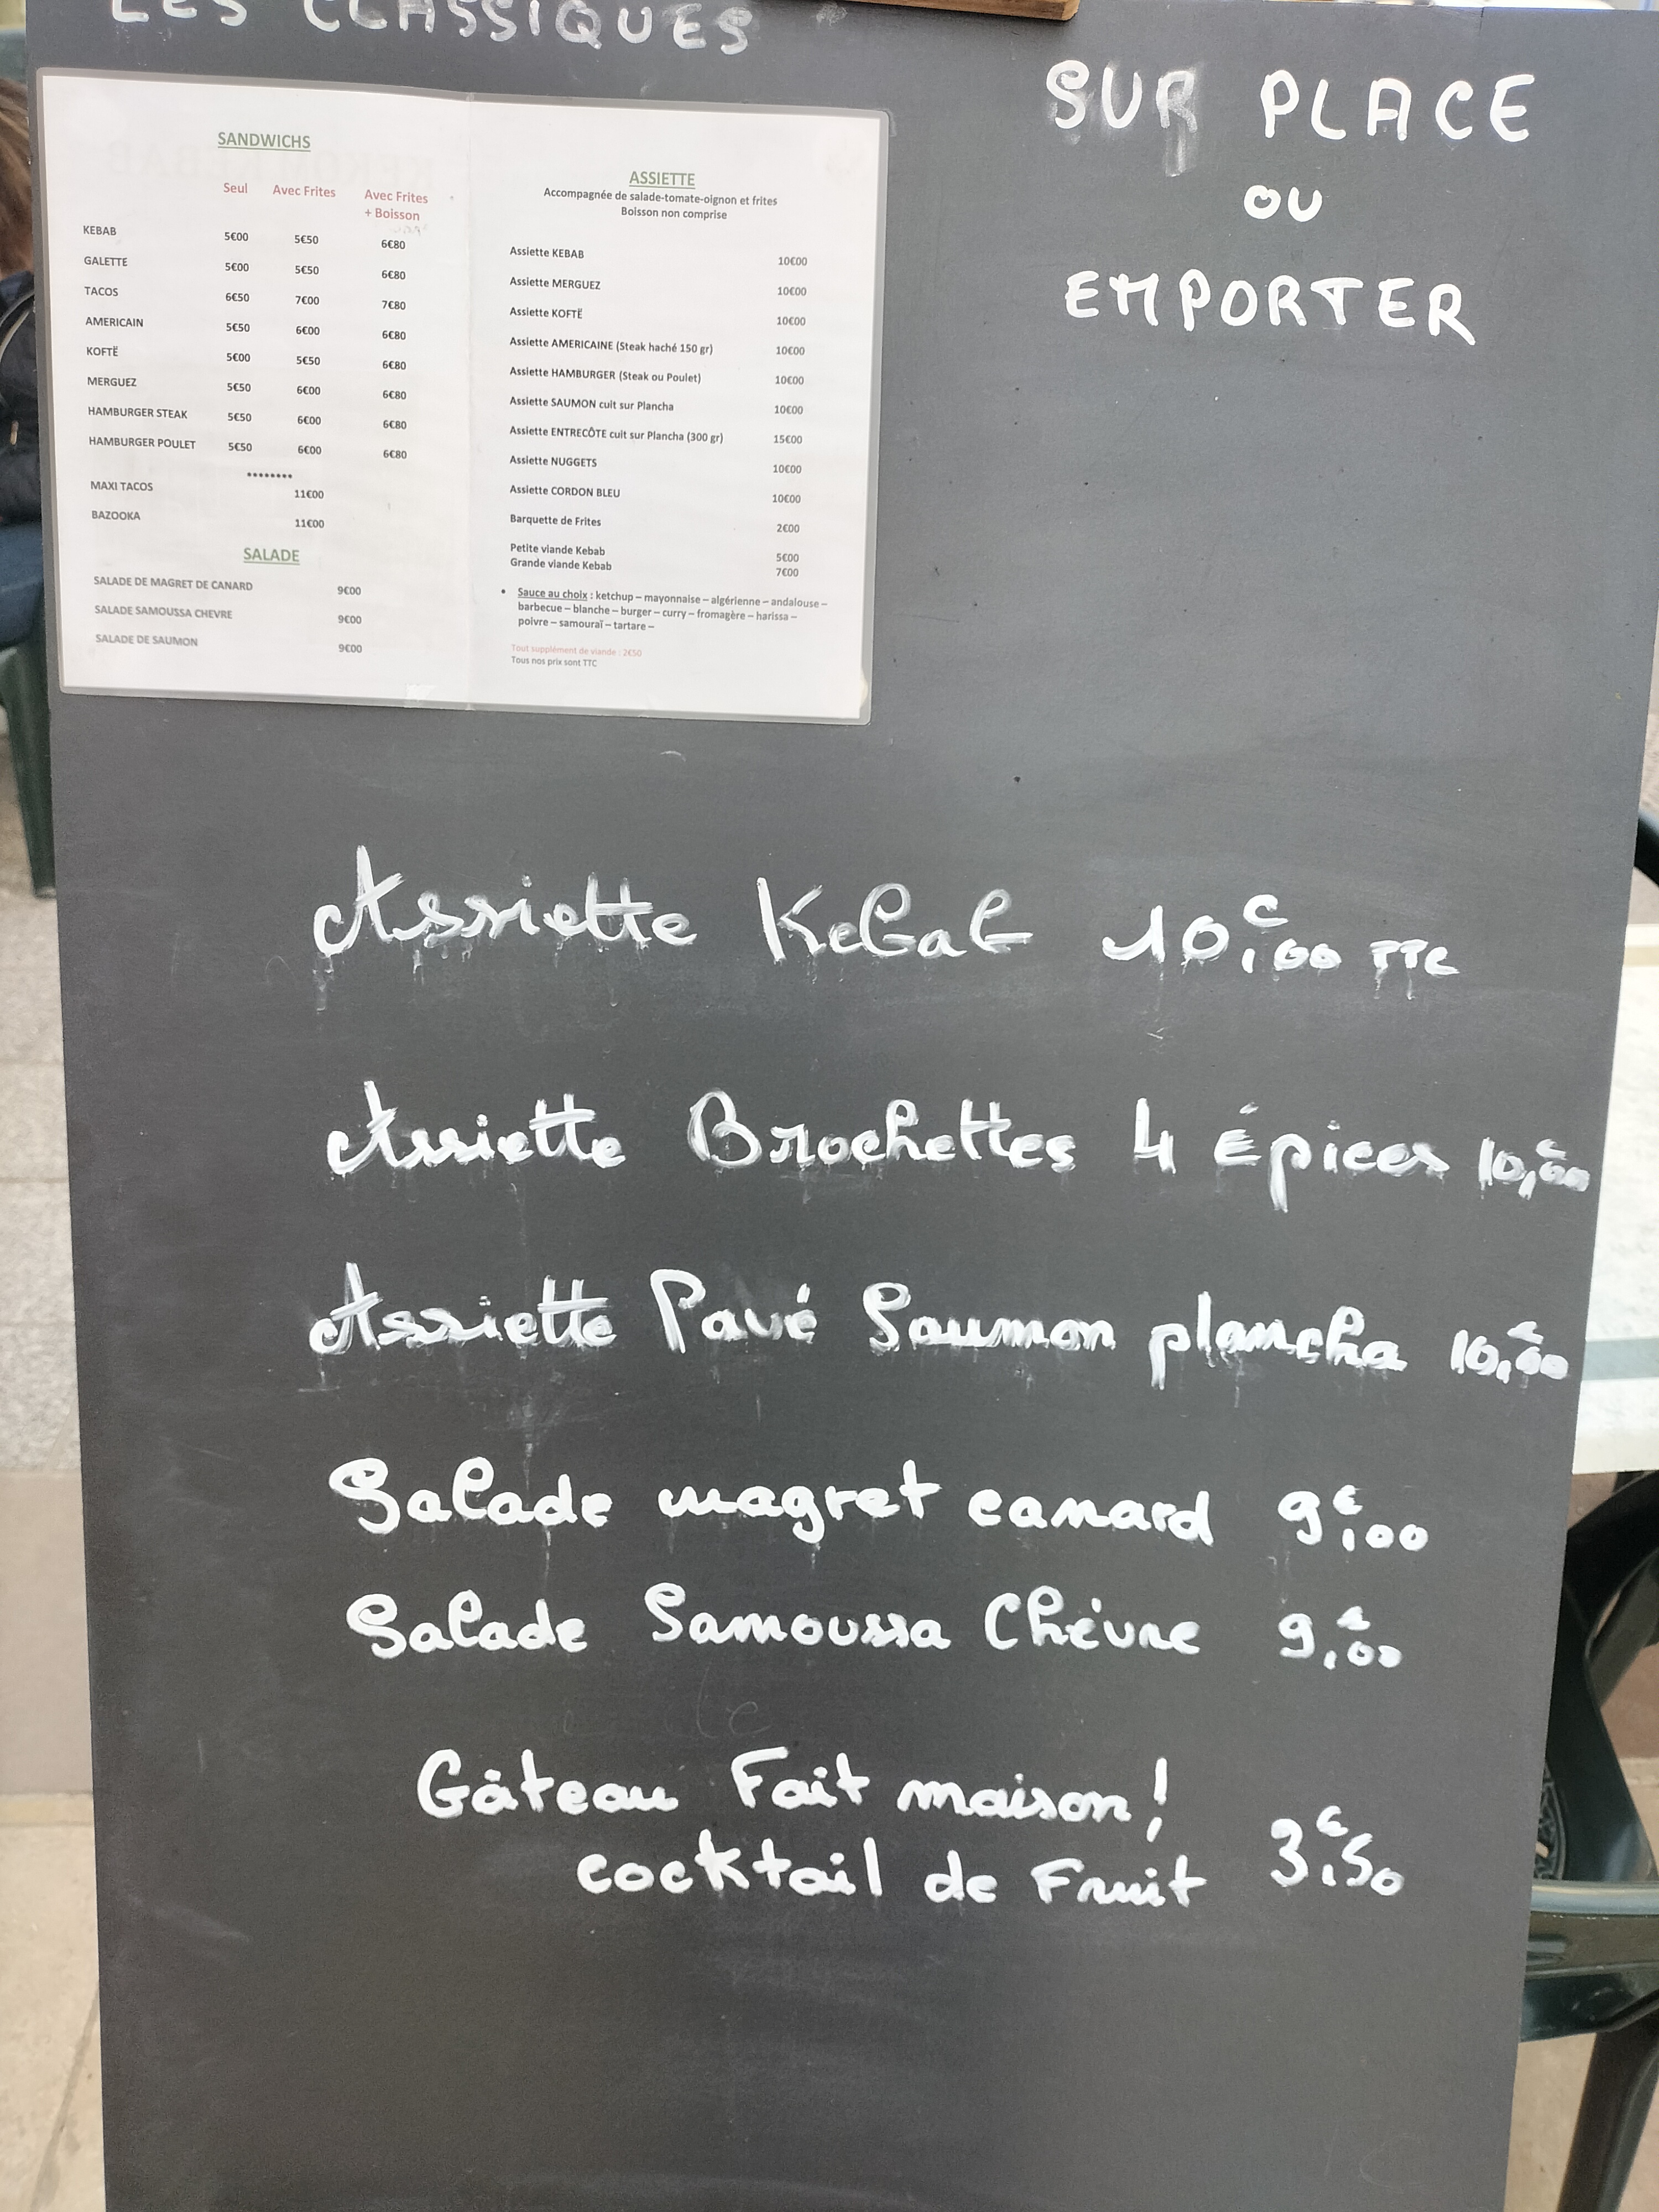 LES CLASSIQUES
SUR PLACE
OU
EMPORTER
SANDWICHS
Seul Avec Frites Avec Frites
+ Boisson
KEBAB 5€00 5€50 6€80
GALETTE 5€00 5€50 6€80
TACOS 6€50 7€00 7€80
AMERICAIN 5€50 6€00 6€80
KOFTË 5€00 5€50 6€80
MERGUEZ 5€50 6€00 6€80
HAMBURGER STEAK 5€50 6€00 6€80
HAMBURGER POULET 5€50 6€00 6€80
********
MAXI TACOS 11€00
BAZOOKA 11€00
SALADE
SALADE DE MAGRET DE CANARD 9€00
SALADE SAMOUSSA CHEVRE 9€00
SALADE DE SAUMON 9€00
ASSIETTE
Accompagnée de salade-tomate-oignon et frites
Boisson non comprise
Assiette KEBAB 10€00
Assiette MERGUEZ 10€00
Assiette KOFTË 10€00
Assiette AMERICAINE (Steak haché 150 gr) 10€00
Assiette HAMBURGER (Steak ou Poulet) 10€00
Assiette SAUMON cuit sur Plancha 10€00
Assiette ENTRECÔTE cuit sur Plancha (300 gr) 15€00
Assiette NUGGETS 10€00
Assiette CORDON BLEU 10€00
Barquette de Frites 2€00
Petite viande Kebab 5€00
Grande viande Kebab 7€00
• Sauce au choix : ketchup – mayonnaise – algérienne – andalouse –
barbecue – blanche – burger – curry – fromagère – harissa –
poivre – samouraï – tartare –
Tout supplément de viande : 2€50
Tous nos prix sont TTC
Assiette Kebab 10,€00 TTC
Assiette Brochettes 4 Épices 10,€00
Assiette Pavé Saumon plancha 10,€00
Salade magret canard 9,€00
Salade Samoussa Chèvre 9,€00
Gâteau Fait maison!
cocktail de Fruit 3,€50